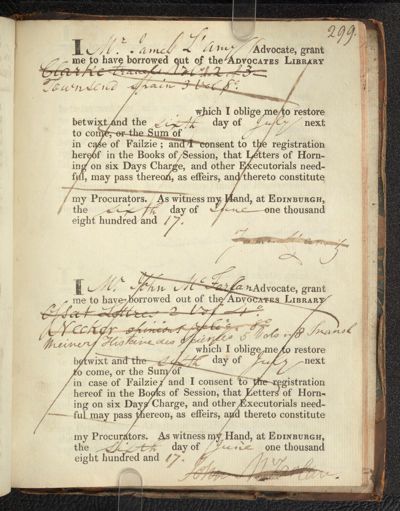 299.
I Mr James L'Amy Advocate, grant
me to have borrowed out of the ADVOCATES LIBRARY
Clarke Travels
Townsend Spain 3 Vol 8o
which I oblige me to restore
betwixt and the sixth day of July next
to come, or the Sum of
in case of Failzie; and I consent to the registration
hereof in the Books of Session, that Letters of Horn-
ing on six Days Charge, and other Executorials need-
ful, may pass thereon, as effeirs, and thereto constitute
my Procurators. As witness my Hand, at EDINBURGH,
the sixth day of June one thousand
eight hundred and 17.
James L'Amy
I Mr. John McFarlan Advocate, grant
me to have borrowed out of the ADVOCATES LIBRARY
2 Vol 4o
Necker
Meiners Histoire des 5 Vols in 8
which I oblige me to restore
betwixt and the sixth day of July next
to come, or the Sum of
in case of Failzie; and I consent to the registration
hereof in the Books of Session, that Letters of Horn-
ing on six Days Charge, and other Executorials need-
ful may pass thereon, as effeirs, and thereto constitute
my Procurators. As witness my Hand, at EDINBURGH,
the sixth day of June one thousand
eight hundred and 17.
John McFarlan.